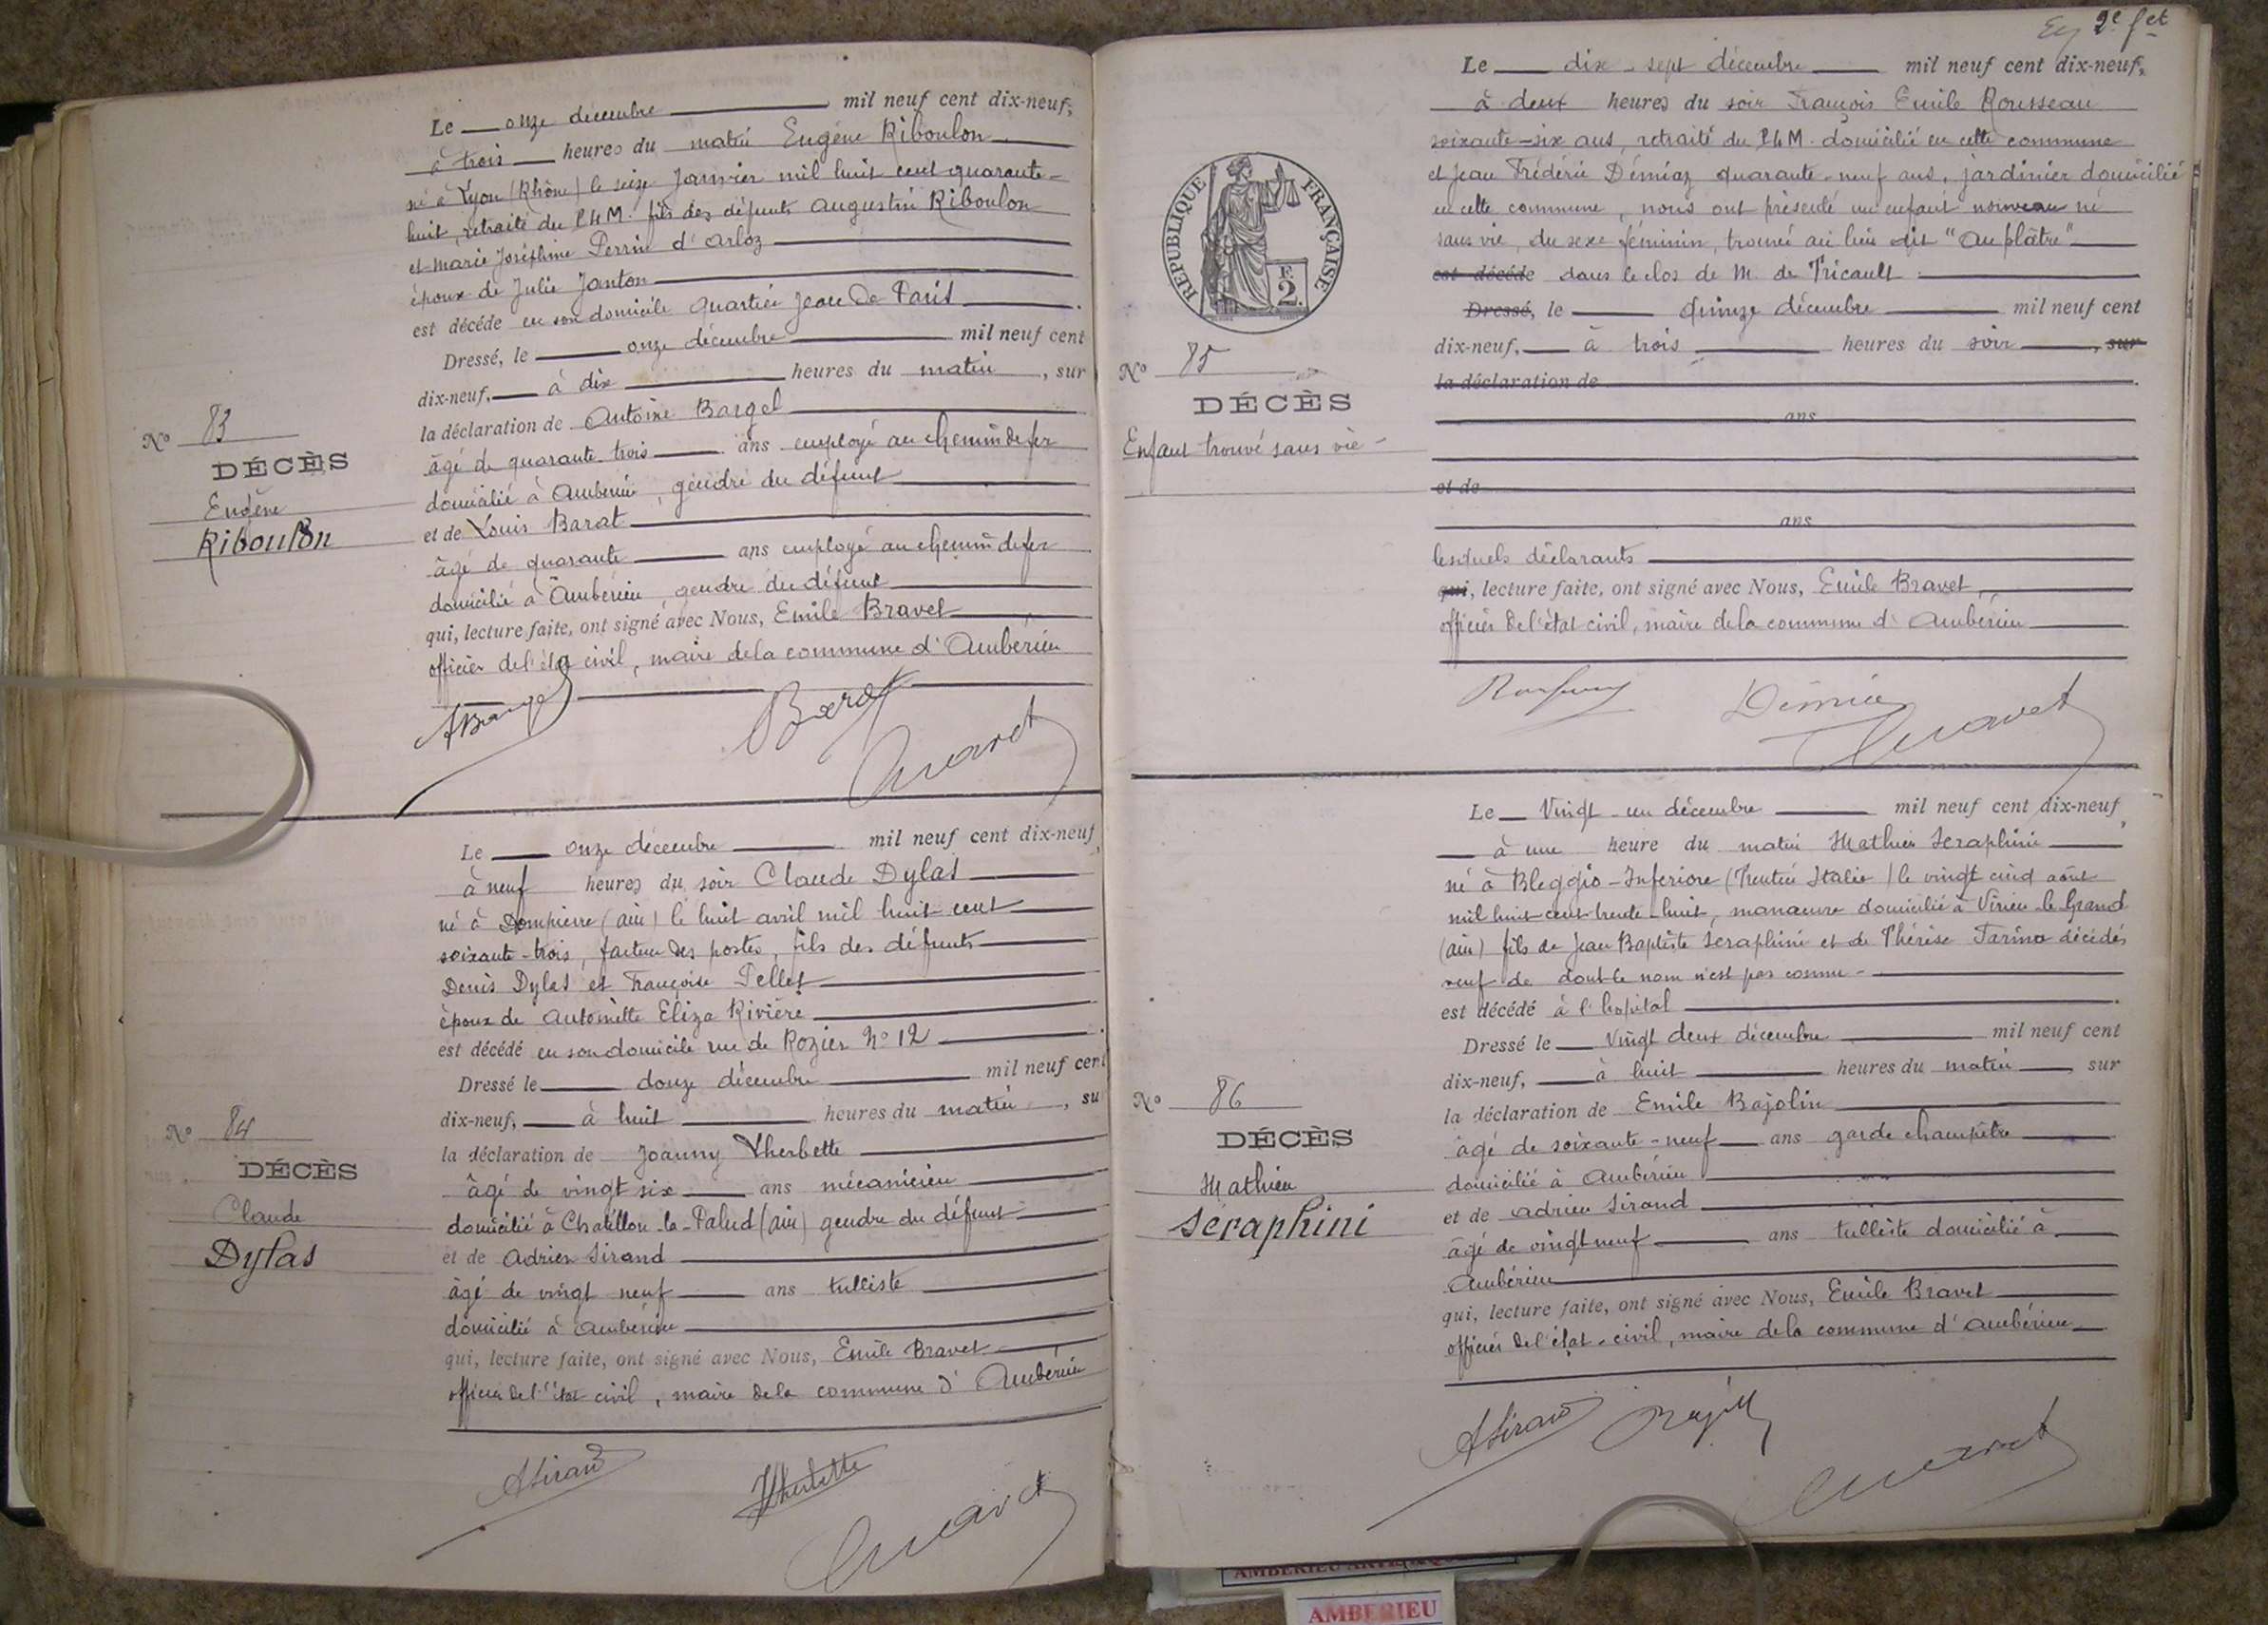 Le onze décembre mil neuf cent dix-neuf,
à trois heures du matin Eugène Riboulon
né à Lyon (Rhône) le seize janvier mil huit cent quarante-
huit, retraité du PLM. fils des défunts Augustin Riboulon
et Marie Joséphine Perrin d'Arloz
époux de Julie Janton
est décédé en son domicile quartier Jean De Paris.
Dressé, le onze décembre mil neuf cent
dix-neuf, à dix heures du matin, sur
la déclaration de Antoine Bargel
âgé de quarante trois ans employé au chemin de fer
domicilié à Ambérieu, gendre du défunt
et de Louis Barat
âgé de quarante ans employé au chemin de fer
domicilié à Ambérieu gendre du défunt
qui, lecture faite, ont signé avec Nous, Emile Bravet
officier de l'état civil, maire de la commune d'Ambérieu
No 83
DÉCÈS
Eugène
Riboulon
ABargel Barat
Bravet
Le onze décembre mil neuf cent dix-neuf,
à neuf heures du soir Claude Dylas
né à Dompierre (ain) le huit avril mil huit cent
soixante-trois, facteur des postes, fils des défunts
Denis Dylas et Françoise Pellet
époux de Antoinette Eliza Rivière
est décédé en son domicile rue de Rozier No 12.
Dressé le douze décembre mil neuf cent
dix-neuf, à huit heures du matin, su
la déclaration de Joanny Lherbette
âgé de vingt six ans mécanicien
domicilié à Chatillon-la-Palud (ain) gendre du défunt
et de Adrien Sirand
âgé de vingt neuf ans tulliste
domicilié à Ambérieu
qui, lecture faite, ont signé avec Nous, Emile Bravet
officier de l'état civil, maire de la commune d'Ambérieu
No 84
DÉCÈS
Claude
Dylas
ASirand Lherbette
Bravet
2e fet
Le dix-sept décembre mil neuf cent dix-neuf,
à deux heures du soir François Emile Rousseau
soixante-six ans, retraité du PLM. domicilié en cette commune
et Jean Frédéric Démiaz quarante-neuf ans, jardinier domicilié
en cette commune, nous ont présenté un enfant nouveau né
sans vie, du sexe féminin, trouvé au lieu dit "Au plâtre"
est décédé dans le clos de M. de Tricault.
Dressé, le quinze décembre mil neuf cent
dix-neuf, à trois heures du soir, sur
la déclaration de
ans
et de
ans
lesquels déclarants
qui, lecture faite, ont signé avec Nous, Emile Bravet,
officier de l'état civil, maire de la commune d'Ambérieu
RÉPUBLIQUE FRANÇAISE
F.
2.
No 85
DÉCÈS
Enfant trouvé sans vie -
Rousseau Démiaz
Bravet
Le Vingt-un décembre mil neuf cent dix-neuf,
à une heure du matin Mathieu Seraphini
né à Bleggio-Inferiore (Trentin Italie) le vingt cinq août
mil huit cent trente-huit, manœuvre domicilié à Virieu-le-Grand
(ain) fils de Jean Baptiste Séraphini et de Thérèse Farina décédés
veuf de dont le nom n'est pas connu -
est décédé à l'hopital.
Dressé le vingt deux décembre mil neuf cent
dix-neuf, à huit heures du matin, sur
la déclaration de Emile Bajolin
âgé de soixante-neuf ans garde champêtre
domicilié à Ambérieu
et de Adrien Sirand
âgé de vingt neuf ans tulliste domicilié à
Ambérieu
qui, lecture faite, ont signé avec Nous, Emile Bravet
officier de l'état-civil, maire de la commune d'Ambérieu
No 86
DÉCÈS
Mathieu
Séraphini
ASirand
Bravet
AMBERIEU